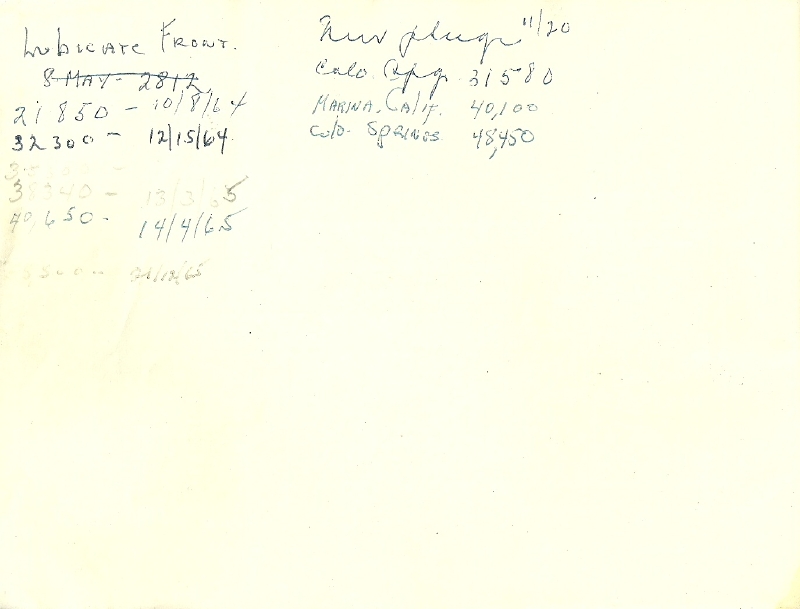 Lubricate Front.
8 MAY - 2812
21850 - 10/8/64
32300 - 12/15/64.
38340 - 13/3/65
40,650 - 14/4/65
21/12/65
New plugs 11/20
Colo. Spg. 31580
MARINA, Calif. 40,100
Colo. Springs 48,450